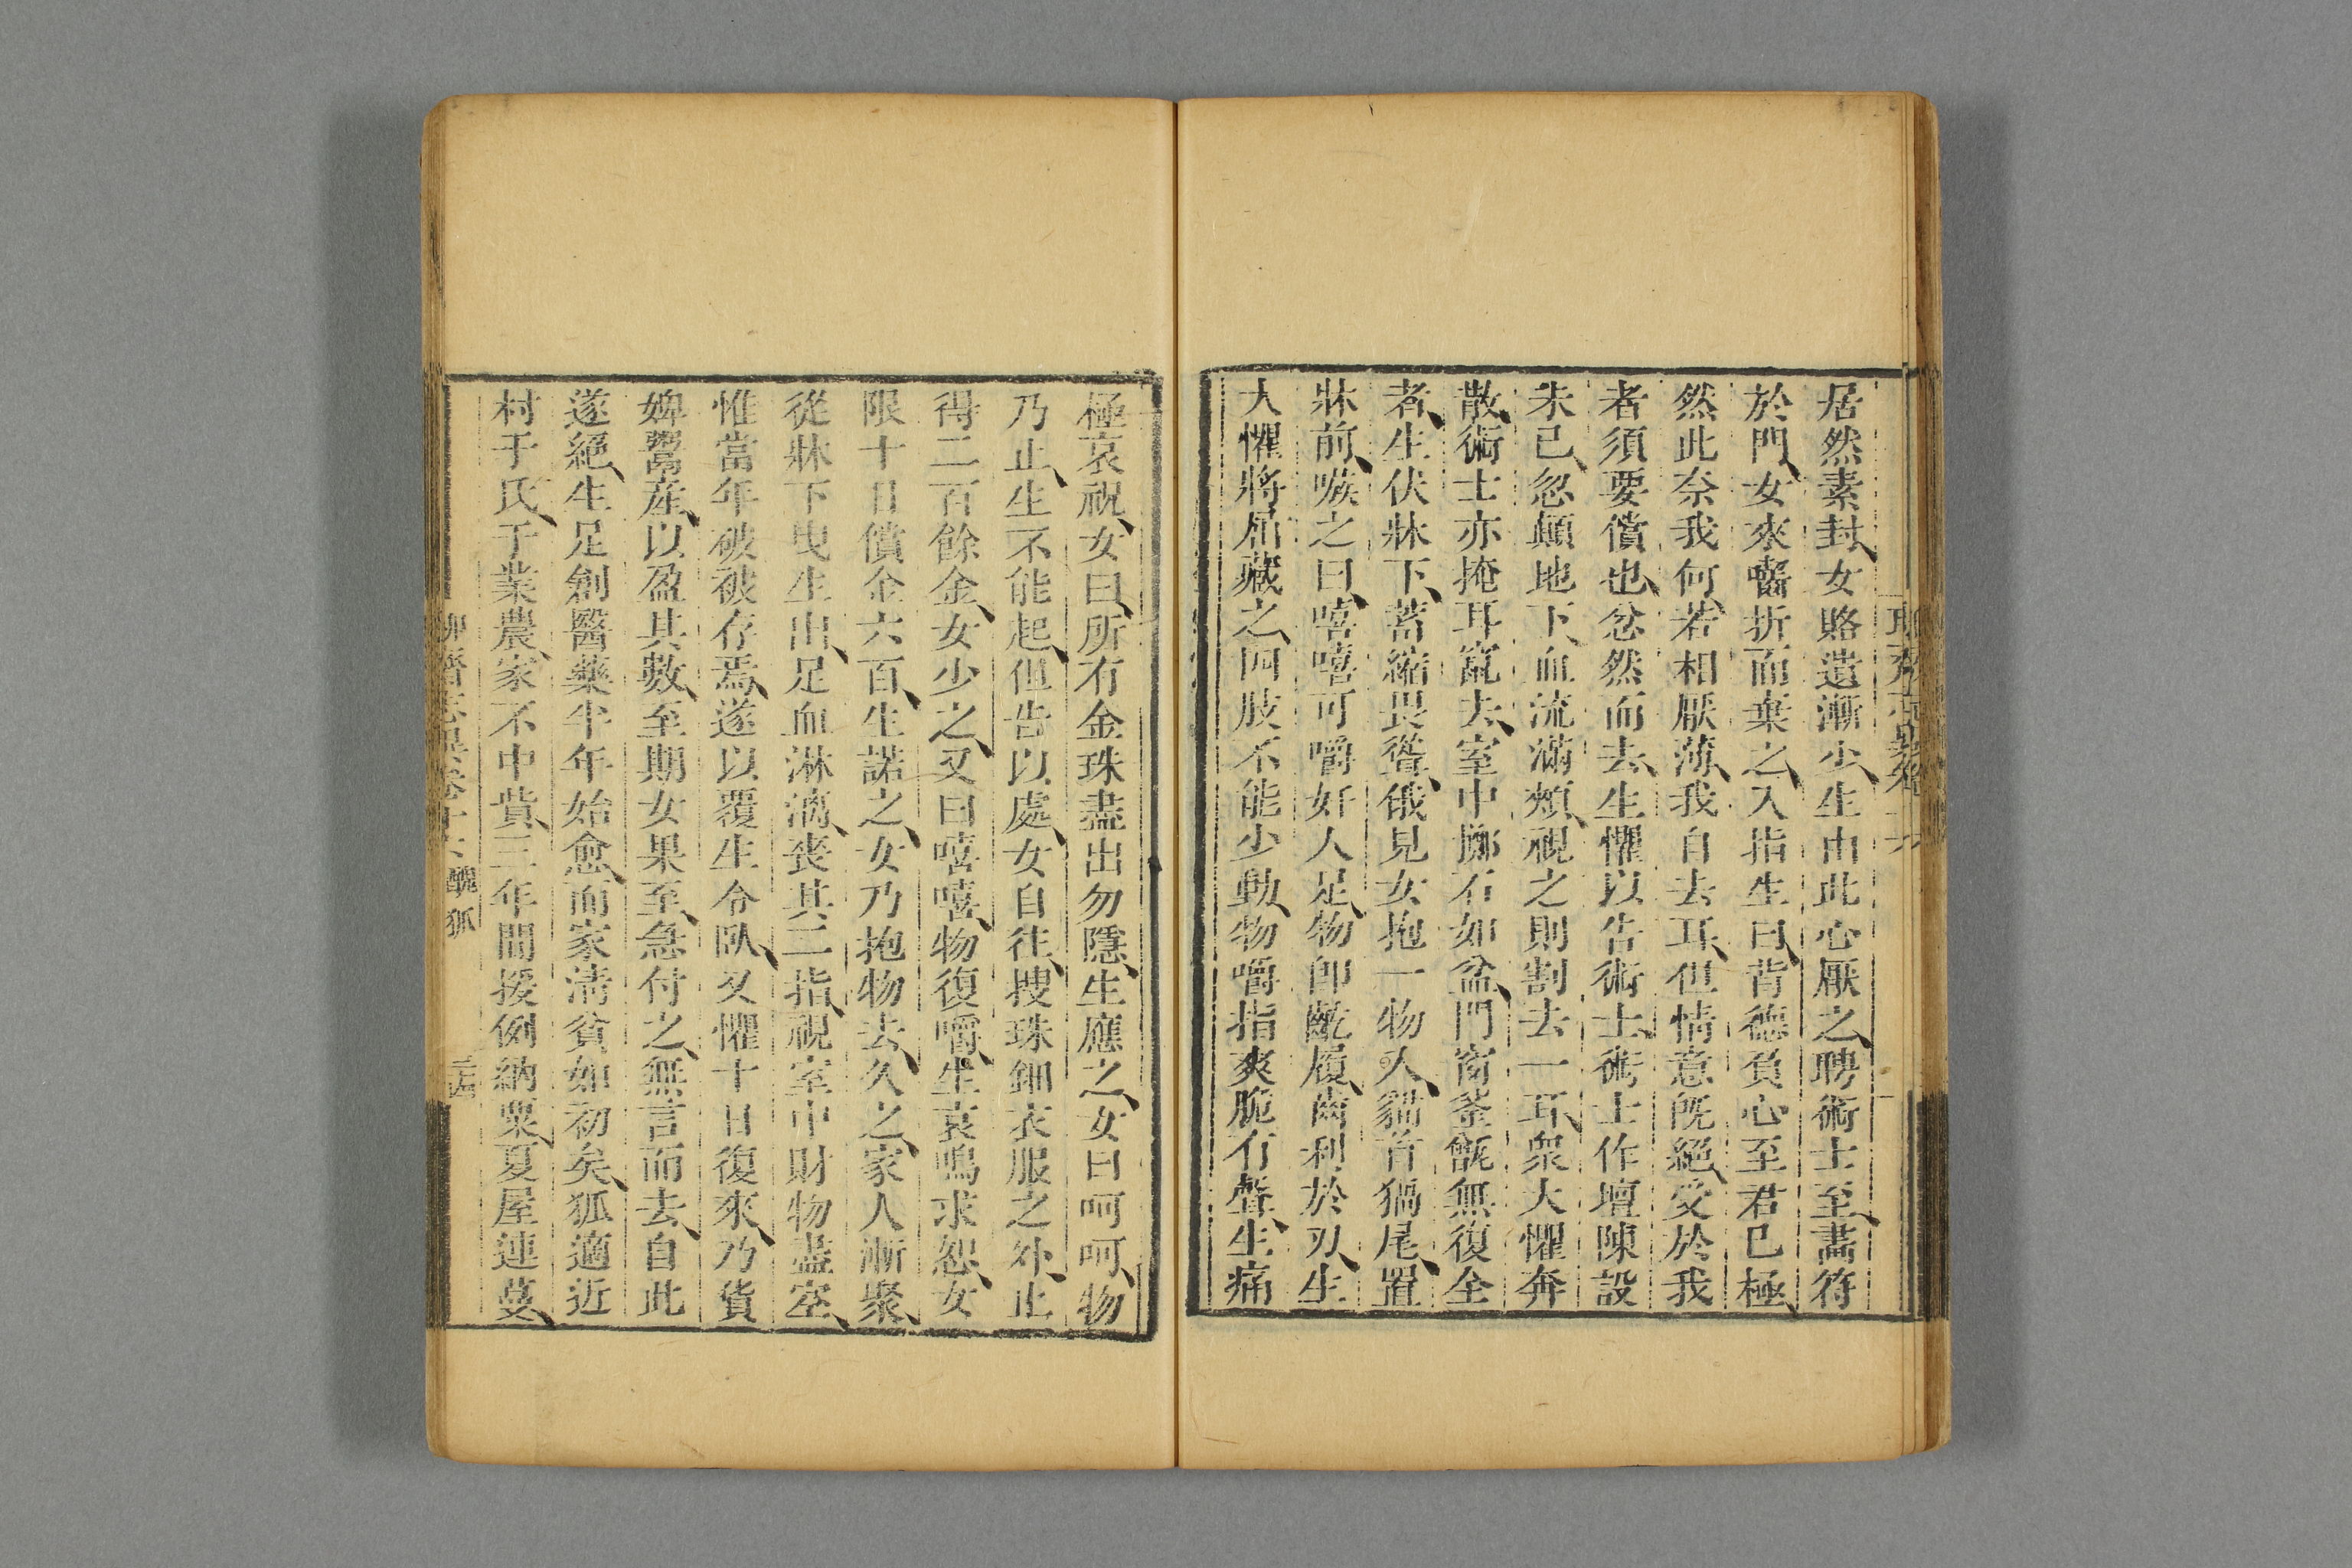 居然素封、女賂遺漸少、生由此心厭之、聘術士至、畵符
於門、女來嚙折而棄之、入指生曰、背德負心至君已極、
然此奈我何、若相厭薄、我自去耳、但情意旣絕、受於我
者須要償也、忿然而去、生懼以告術士、術士作壇陳設
未已、忽顚地下、血流滿頰、視之則割去一耳、衆大懼奔
散、術士亦掩耳竄去、室中擲石如盆、門窗釜甑無復全
者、生伏牀下、蓄縮畏聳、俄見女抱一物入、貓首猧尾、置
牀前、嗾之曰、嘻嘻可嚼奸人足、物卽齕履、齒利於刃、生
大懼將屈藏之、四肢不能少動、物嚼指爽脆有聲、生痛
極哀視、女曰、所有金珠盡出勿隱、生應之、女曰呵呵、物
乃止、生不能起、但告以處、女自往、搜珠鈿衣服之外、止
得二百餘金、女少之、又曰嘻嘻、物復嚼、生哀鳴求恕、女
限十日償金六百、生諾之、女乃抱物去、久之、家人漸聚、
從牀下曳生出、足血淋漓、喪其二指、視室中財物盡空、
惟當年破被存焉、遂以覆生令臥、又懼十日復來、乃貨
婢鬻產、以盈其數、至期女果至、急付之、無言而去、自此
遂絕、生足創醫藥半年始愈、而家淸貧如初矣、狐適近
村于氏、于業農、家不中貲、三年間援例納粟、夏屋連蔓、
聊齋志異卷十六 醜狐